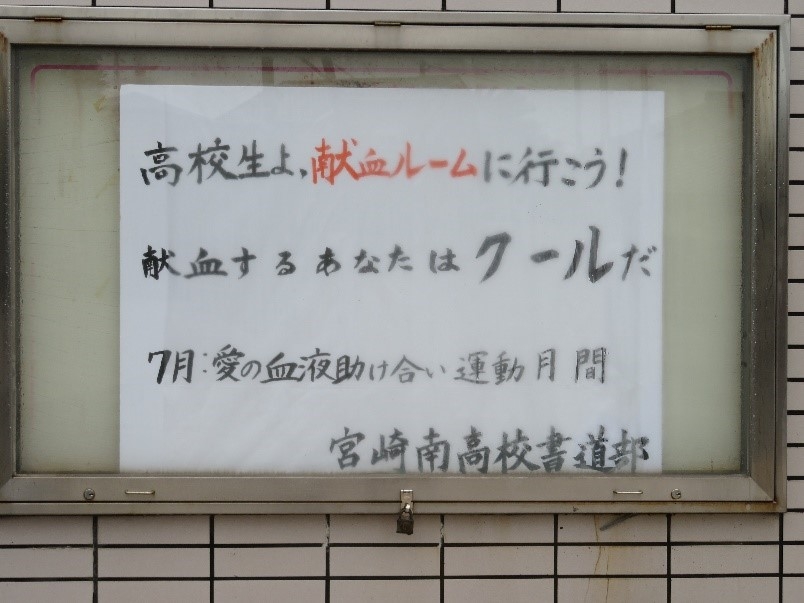 高校生よ、献血ルームに行こう!
献血するあなたはクールだ
7月:愛の血液助け合い運動月間
宮崎南高校書道部